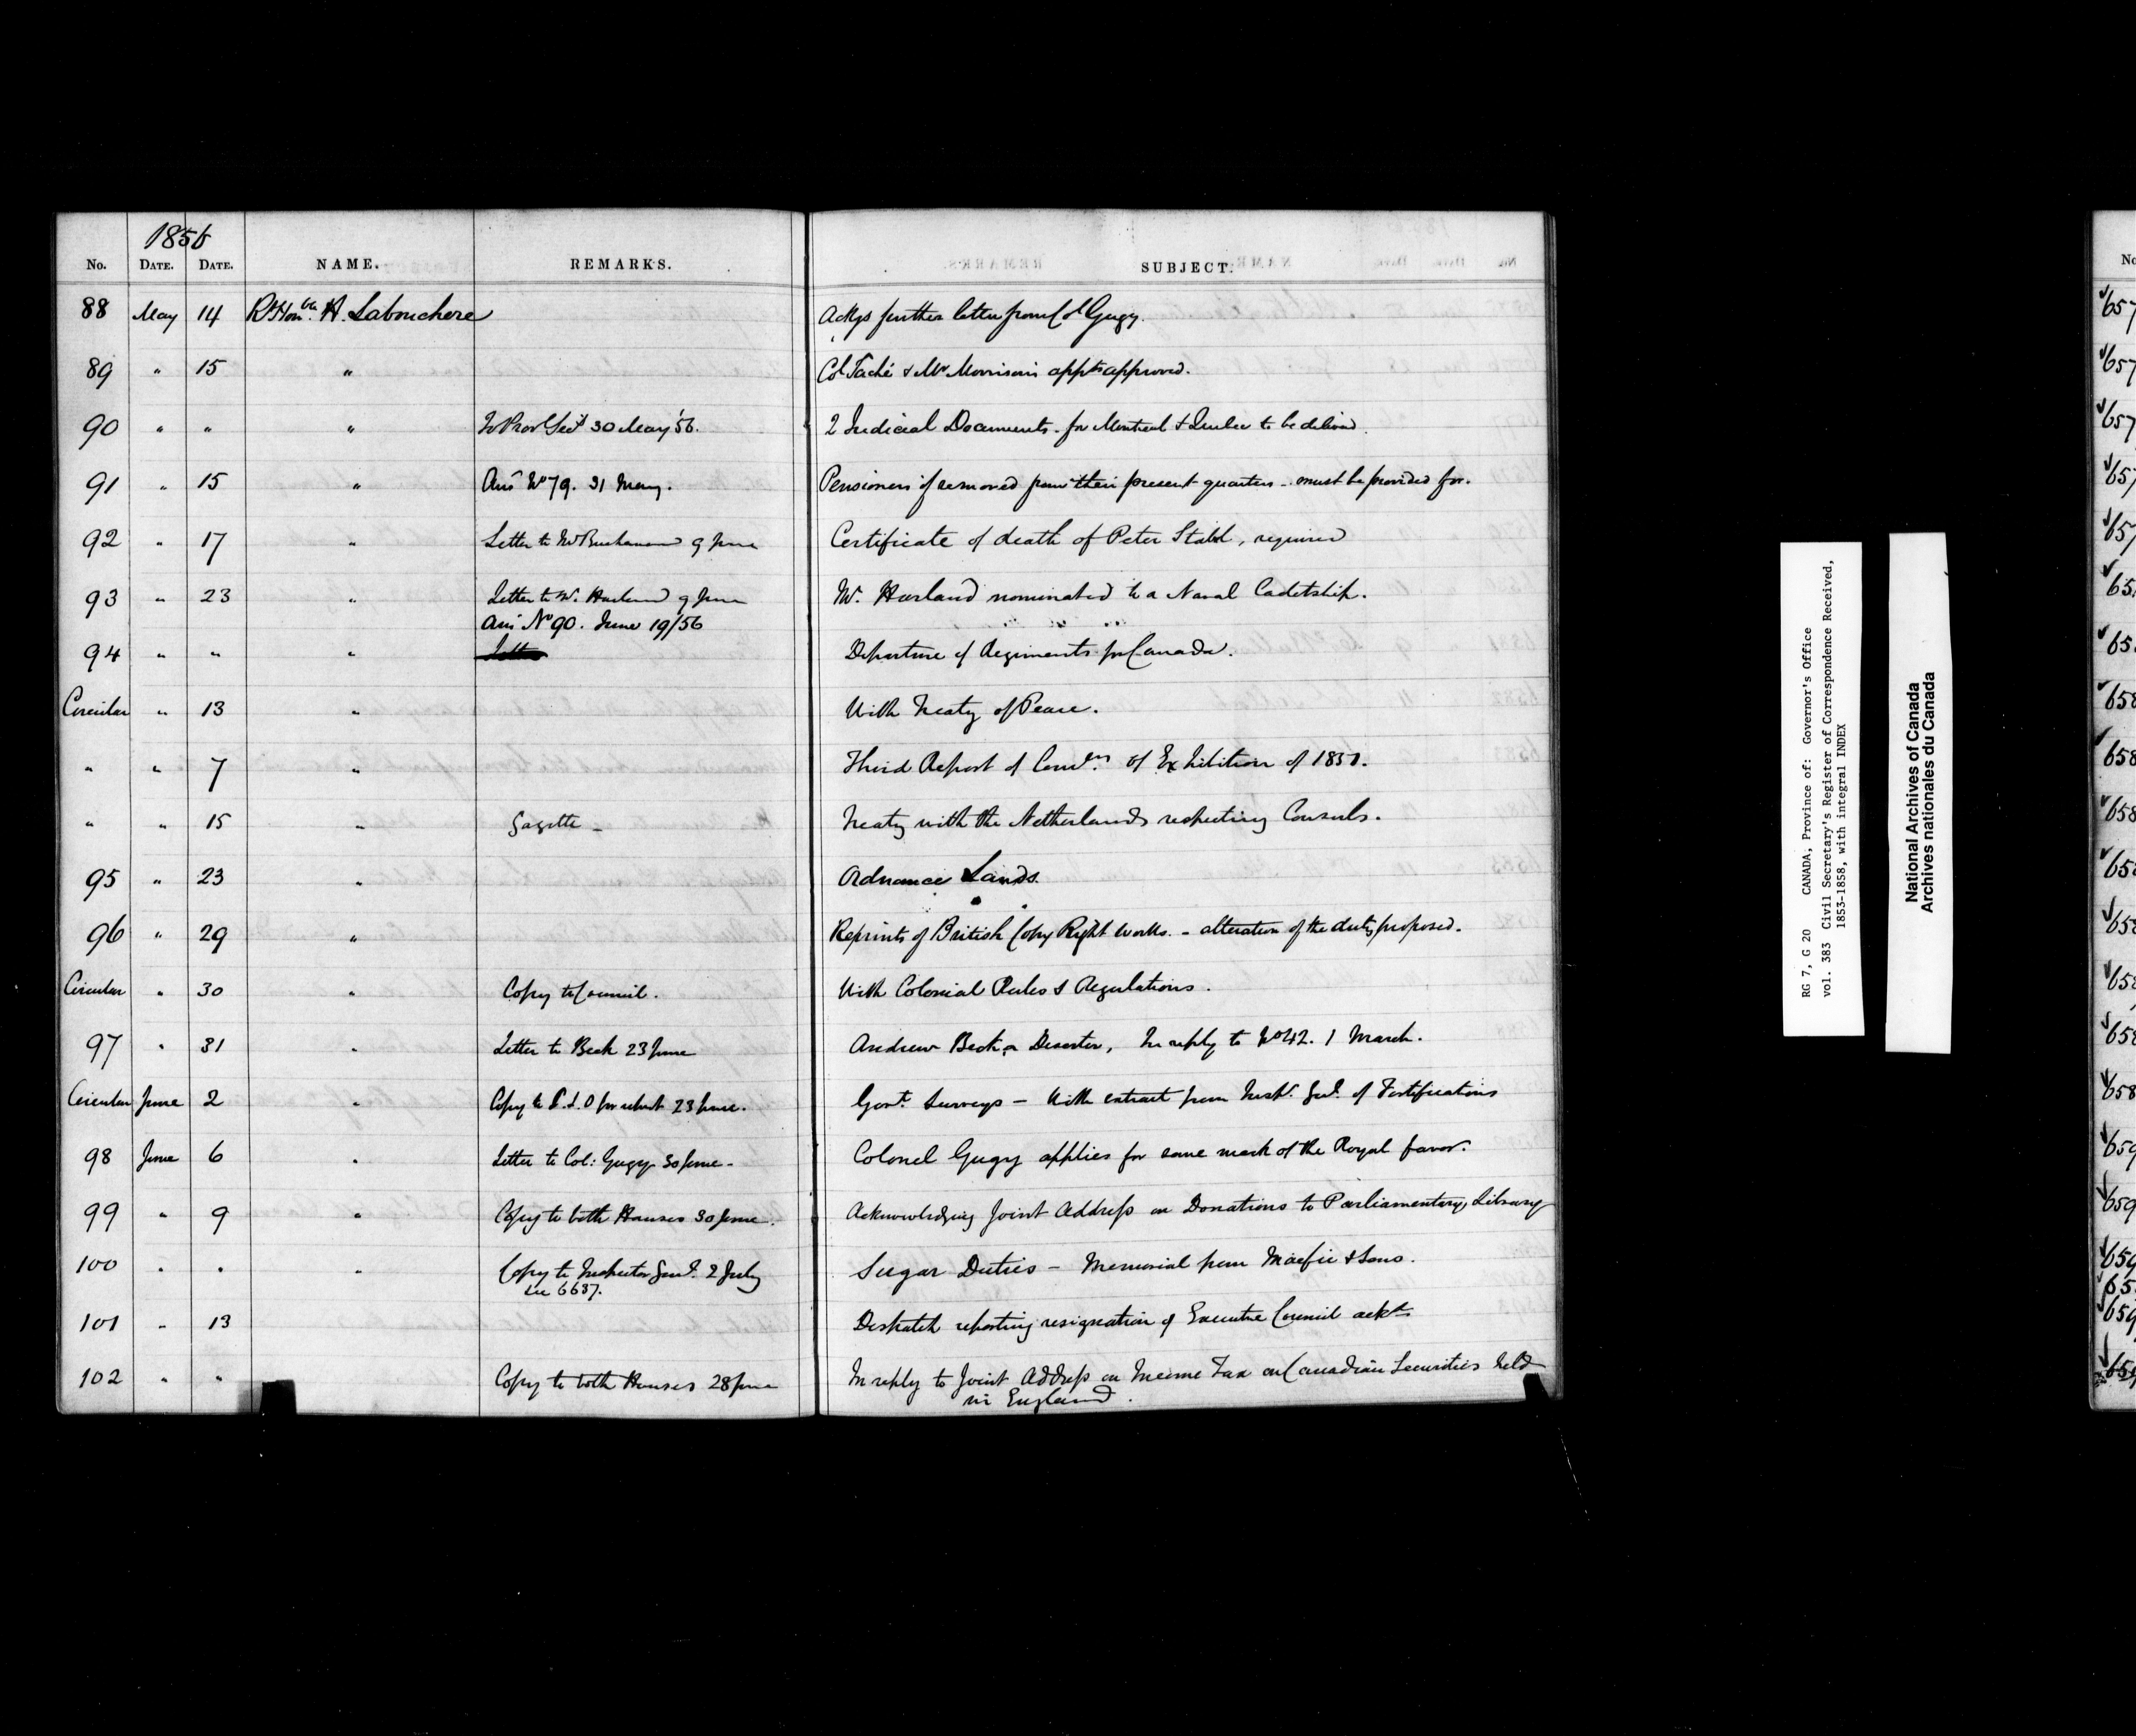 1856
No. DATE. DATE. NAME. REMARKS. SUBJECT.
88 May 14 Rt Honble. H. Labouchere Ackgs further letter from Col Gugy.
89 " 15 " Col Taché & Mr Morrison's appts approved.
90 " " " To Prov Secy 30 May '56. 2 Judicial Documents. for Montreal & Quebec to be delivered.
91 " 15 " Ansd No 79. 31 May. Pensioners if removed from their present quarters - must be provided for.
92 " 17 " Letter to Mr Buchanan 9 June Certificate of death of Peter, required
93 " 23 " Letter to Mr. Harland 9 June Mr. Harland nominated to a Naval Cadetship.
Ans No 90. June 19/56
94 " " " Departure of Regiments for Canada.
Circular " 13 " With Treaty of Peace.
" " 7 " Third Report of Comrs. of Exhibition of 1851.
" " 15 " Gazette - Treaty with the Netherlands respecting Consuls.
95 " 23 " Ordnance Lands.
96 " 29 " Reprints of British Copy Right works. - alteration of the duty proposed.
Circular " 30 " Copy to Council. With Colonial Rules & Regulations.
97 " 31 " Letter to Beck 23 June Andrew Beck a Deserter, In reply to No 42. 1 March.
Circular June 2 " Copy to C.L.O for report 23 June. Govt. Surveys - With extract from Inspr. Genl. of Fortifications
98 June 6 " Letter to Col: Gugy 30 June - Colonel Gugy applies for some mark of the Royal favor.
99 " 9 " Copy to both Houses 30 June. Acknowledging Joint Address on Donations to Parliamentary Library
100 " " " Copy to Inspector Genl. 2 July Sugar Duties - Memorial from Macfie & Sons.
See 6637.
101 " 13 Despatch reporting resignation of Executive Council ackd
102 " " Copy to both Houses 28 June In reply to Joint Address on Income Tax on Canadian Securities held
in England.
RG 7, G 20 CANADA, Province of: Governor's Office
vol. 383 Civil Secretary's Register of Correspondence Received,
1853-1858, with integral INDEX
National Archives of Canada
Archives nationales du Canada